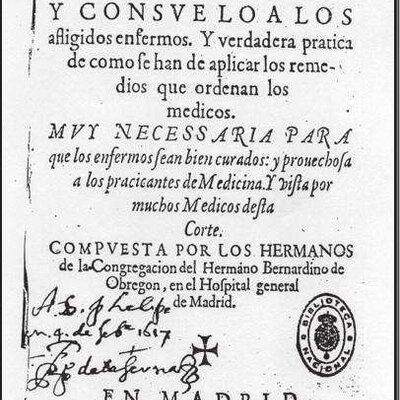 Y CONSVELO A LOS
afligidos enfermos. Y verdadera pratica
de como se han de aplicar los reme-
dios que ordenan los
medicos.
MVY NECESSARIA PARA
que los enfermos sean bien curados: y prouechosa
a los pracicantes de Medicina. Y vista por
muchos Medicos desta
Corte.
COMPVESTA POR LOS HERMANOS
de la Congregacion del Hermano Bernardino de
Obregon, en el Hospital general
de Madrid.
BIBLIOTECA NACIONAL
EN MADRID